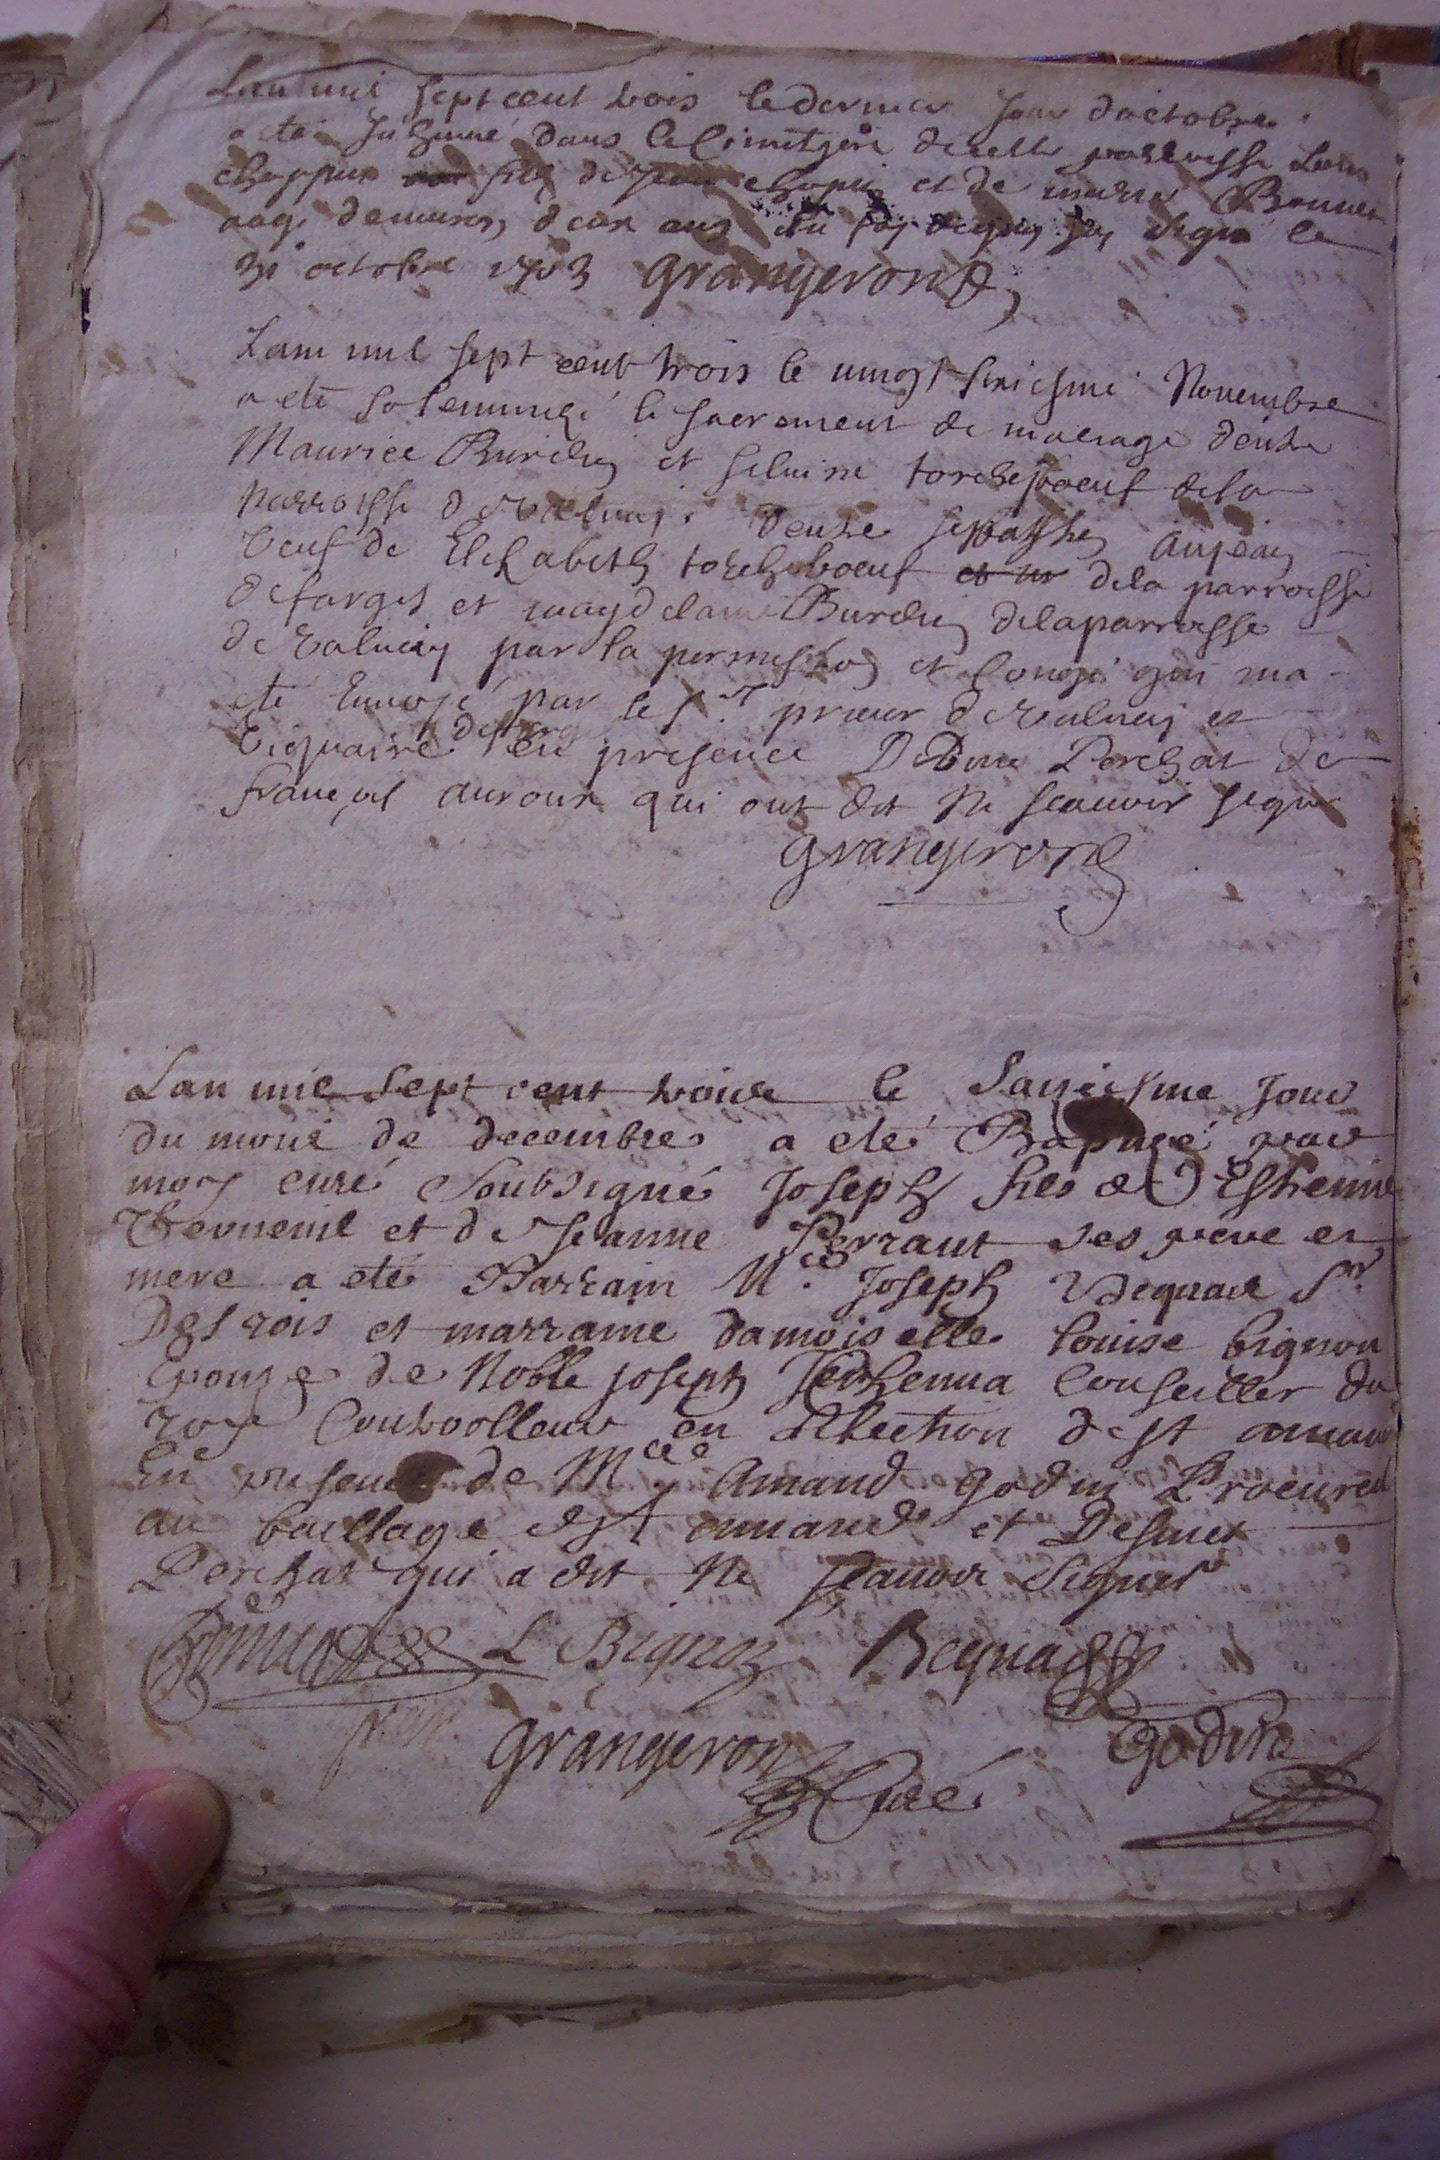 Lan mil sept cent trois le dernier Jour doctobre
a eté Inhumé dans le Cimetgere de cette parroisse
choppin fils de Jean chopin et de marie Bonnet
aagé denviron deux ans en foy dequoy Jay signé le
31 octobre 1703 Grangeron
Lan mil sept cent trois le vingt Novembre
a eté solemnizé le sacrement de mariage dentre
Maurice Burdin et silvine torcheboeuf dela
parroisse de Valnay. dentre sepastien aujain
veuf de Elizabeth torcheboeuf dela parroisse
de farges et magdelaine Burdin dela parroisse
de Valnay par la permission et Congé qui ma
eté Envoyé par le sr. prieur de Valnay et
viquaire de farges en presence De Perchat de
francois auroux qui ont dit Ne scauoir signer
Grangeron
Lan mil sept cent trois le Jour
du mois de decembre a eté Baptisé par
moy curé Soubsigné Joseph fils de Estienne
Verneuil et de Jeanne Perraut ses pere et
mere a eté Parrain Me. Joseph Sr.
Desrois et marraine damoiselle louise bignon
Epouze de Noble joseph Conseiller du
roy Controolleur en Election de st amand
En presence de Me Amand godin Procureur
au baillage de st amand et
Perchat qui a dit Ne scauoir Signer
L Bignon
Grangeron Godin
Curé